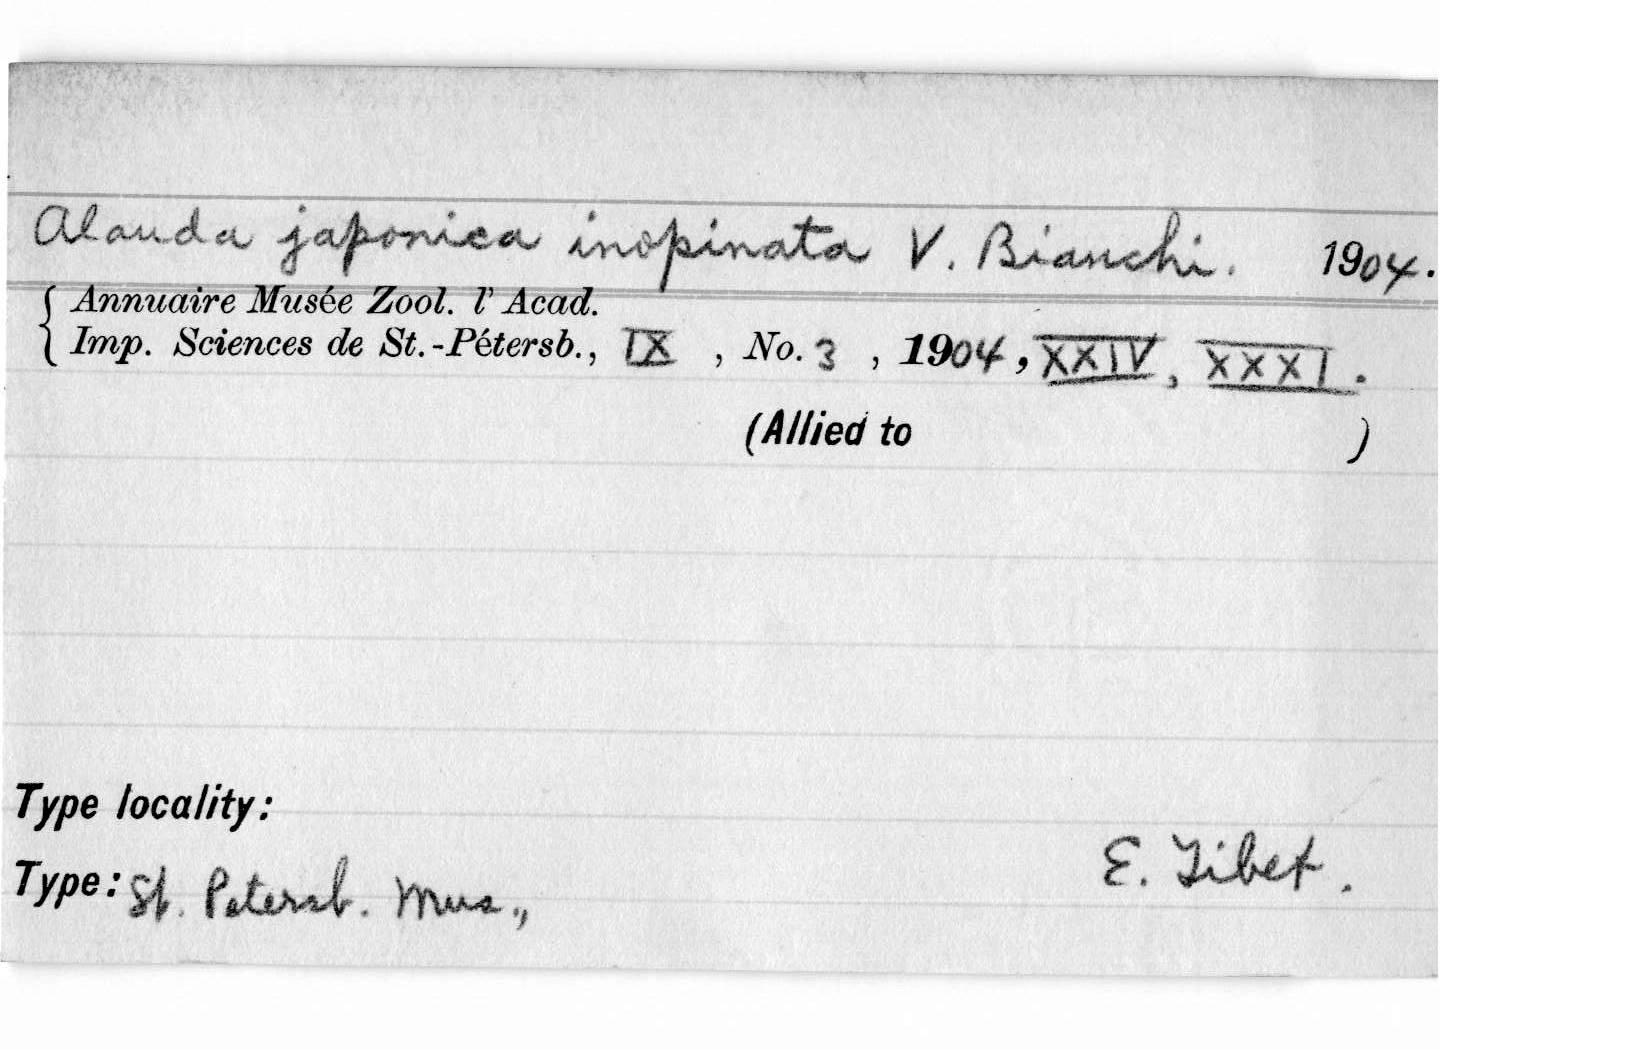 Alauda japonica inopinata V. Bianchi. 1904.
Annuaire Musée Zool. l' Acad.
Imp. Sciences de St.-Pétersb., IX , No. 3 , 1904, XXIV, XXXI.
(Allied to )
Type locality:
E. Tibet.
Type: St. Petersb. Mus.,